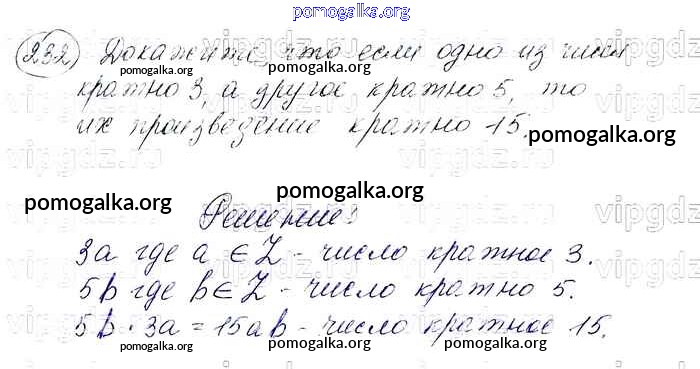 pomogalka.org
232) Докажите, что если одно из чисел
кратно 3, а другое кратно 5, то
их произведение кратно 15.
pomogalka.org
pomogalka.org
pomogalka.org
pomogalka.org
pomogalka.org
pomogalka.org
Решение:
3a где a ∈ Z - число кратное 3.
5b где b ∈ Z - число кратно 5.
5b · 3a = 15ab - число кратное 15.
pomogalka.org
pomogalka.org
pomogalka.org
vipgdz.ru